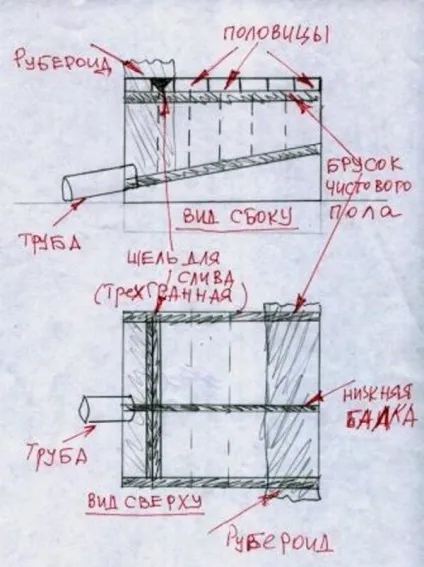 ПОЛОВИЦЫ
РУБЕРОИД
БРУСОК
ЧИСТОВОГО
ПОЛА
ВИД СБОКУ
ТРУБА
ЩЕЛЬ ДЛЯ
СЛИВА
(ТРЕХГРАННАЯ)
НИЖНЯЯ
БАЛКА
ТРУБА
ВИД СВЕРХУ
РУБЕРОИД